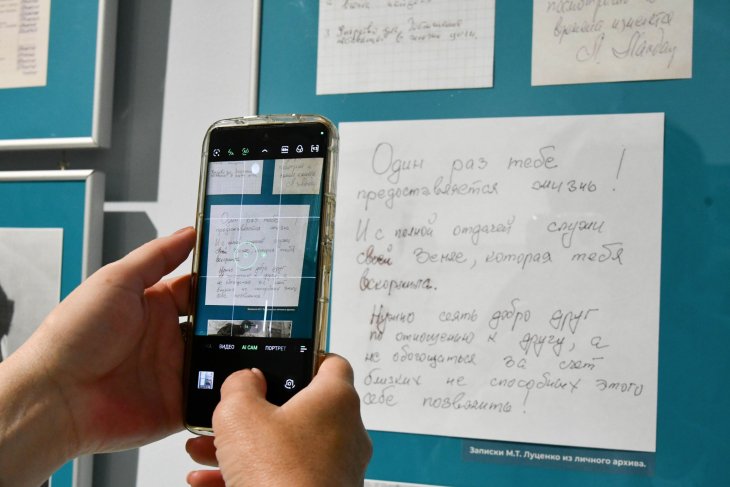 3
Один раз тебе !
предоставляется жизнь!
И с полной отдачей служи
своей Земле, которая тебя
вскормила.
Нужно сеять добро друг
по отношению к другу, а
не обогощаться за счёт
близких не способных этого
себе позволить!
Записки М.Т. Луценко из личного архива.
времена изменятся
ВИДЕО AI CAM ПОРТРЕТ